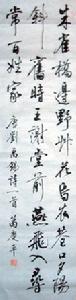 朱雀橋邊野草花烏衣巷口夕陽
斜舊時王謝堂前燕飛入尋
常百姓家 唐劉禹錫詩一首